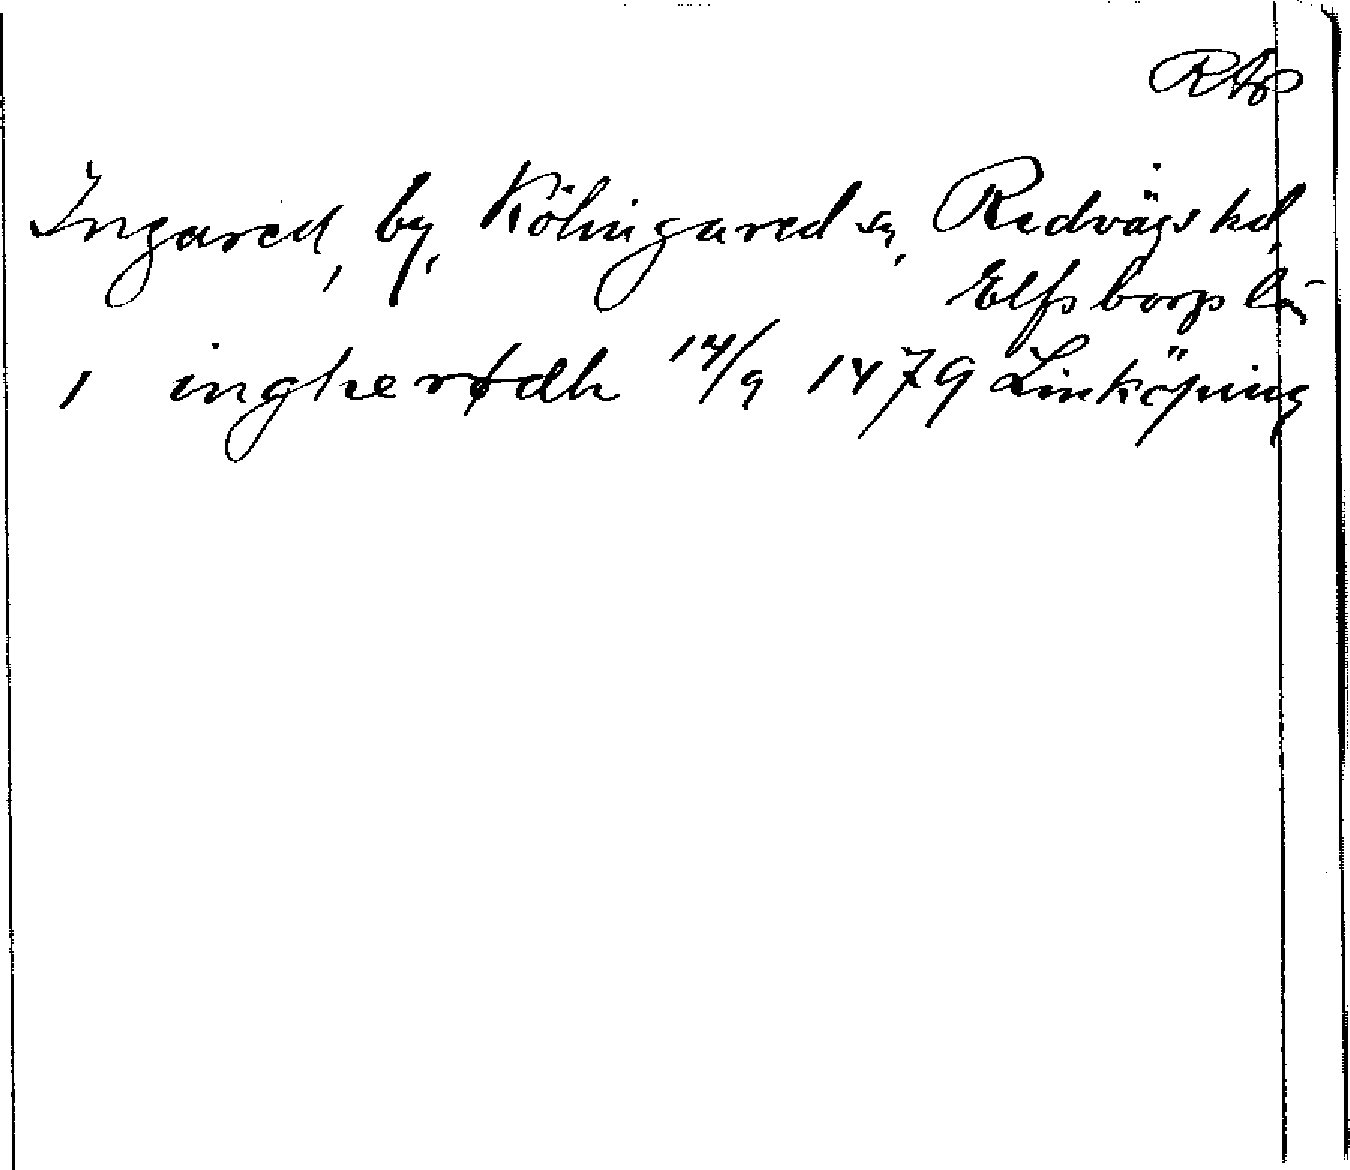 RAp
Ingared, by, Kölingared sn, Redvägs hd,
Elfsborgs län
1 ingherødh 14/9 1479 Linköping